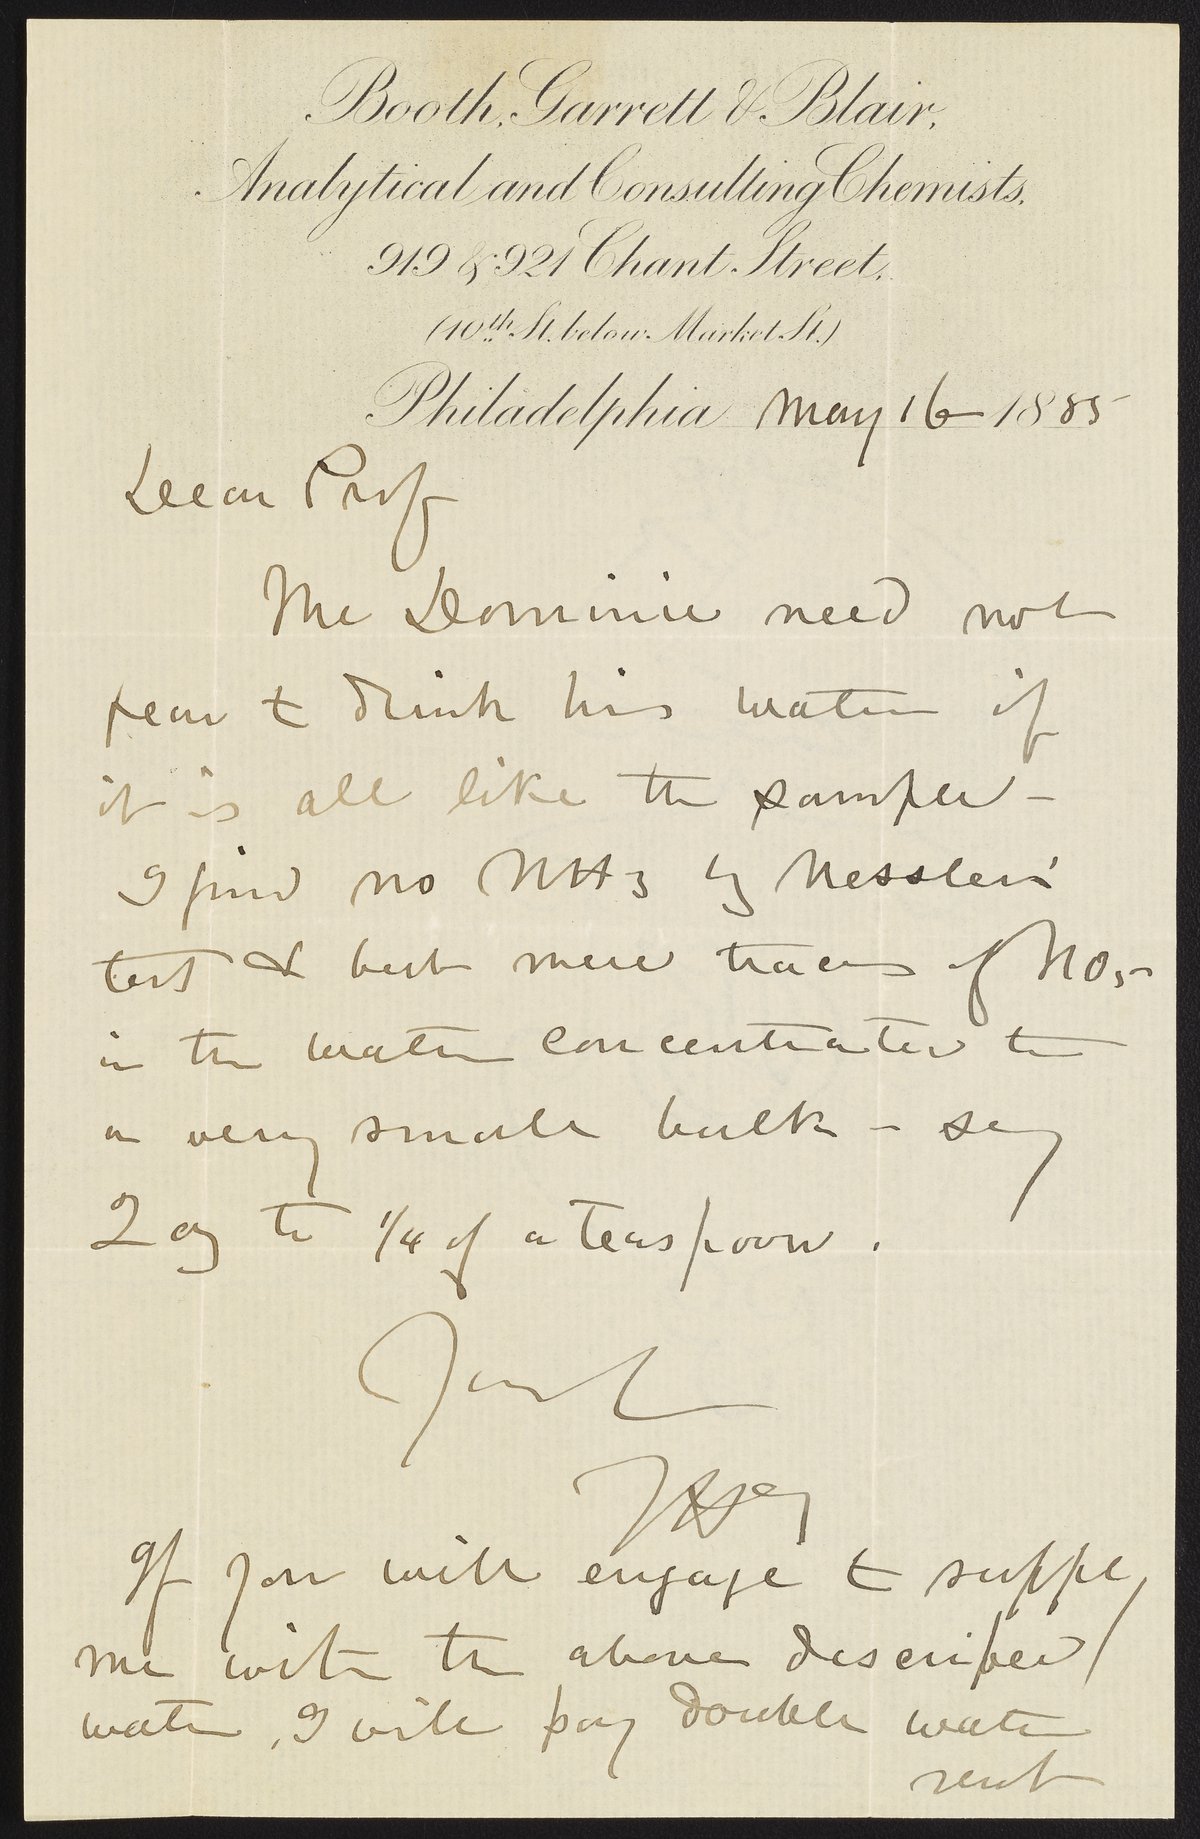 Booth, Garrett & Blair,
Analytical and Consulting Chemists,
919 & 921 Chant Street,
(10th St. below Market St.)
Philadelphia May 16 1885
Dear Prof
The Dominie need not
fear to drink his water if
it is all like the sample –
I find no NH3 by Nessler's
test & but mere traces of NO5
in the water concentrated to
a very small bulk – say
2 oz to 1/4 of a teaspoon.
If you will engage to supply
me with the above described
water, I will pay double water
rent